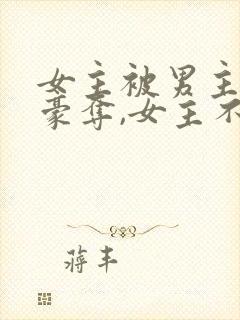 女主被男主
豪夺,女主不
蒋丰